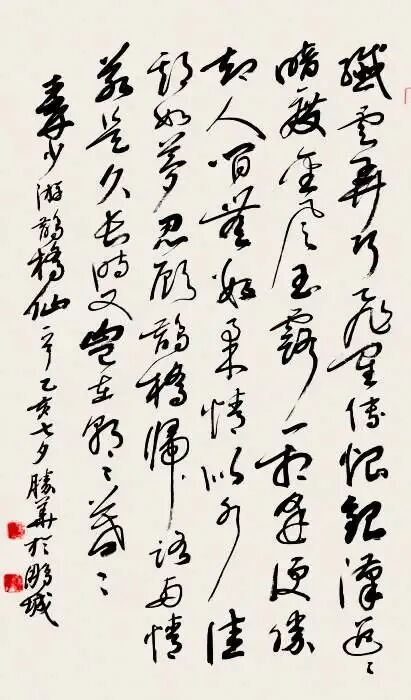 纖雲弄巧飛星傳恨銀漢迢〻
暗度金風玉露一相逢便勝
却人間無數柔情似水佳
期如夢忍顧鵲橋歸路兩情
若是久長時又豈在朝〻暮〻
秦少游鵲橋仙 乙亥七夕勝華於鵬城